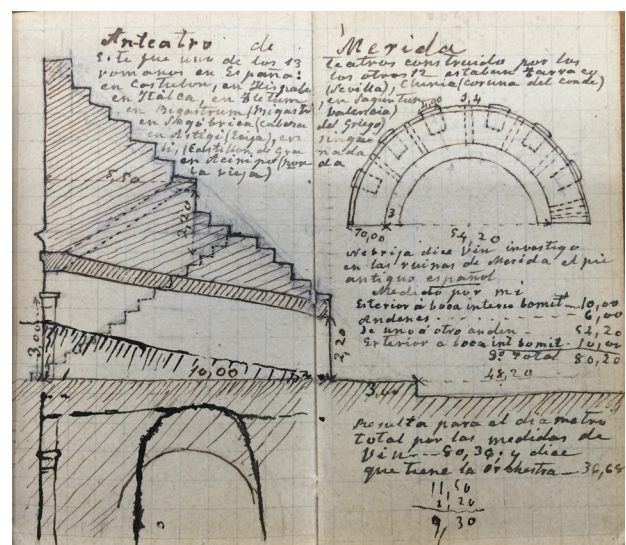 Anteatro de Merida
Este fue uno de los 13 teatros construido por los
romanos en España: los otros 12 estaban Tarraco
en Castulon, en Hispalis (Sevilla), Clunia (Coruna del Conde)
en Italca, en en Saguntum
en Bigastrum (Bigastro Valencia)
en Sagobrica (Cabeza del Griego)
en Astigi (Ecija), en
(Castillon de Gra nada
en Acinipo (Ron da
la vieja)
5,50
2,20
3,00
10,00
2,20
3,00
4,00 3,4
3
10,00 54,20
Nebrija dice Vin investigo
en las ruinas de Merida el pie
antiguo español
Medido por mi
Exterior a boca interio bomit - 10,00
Andenes - - - - - 6,00
de uno a otro anden - 54,20
Exterior a boca int bomit - 10,00
Total 80,20
48,20
Resulta para el diametro
total por las medidas de
Vin - - - 80,36; y dice
que tiene la Orkhestra - 36,68
11,50
2,20
9,30